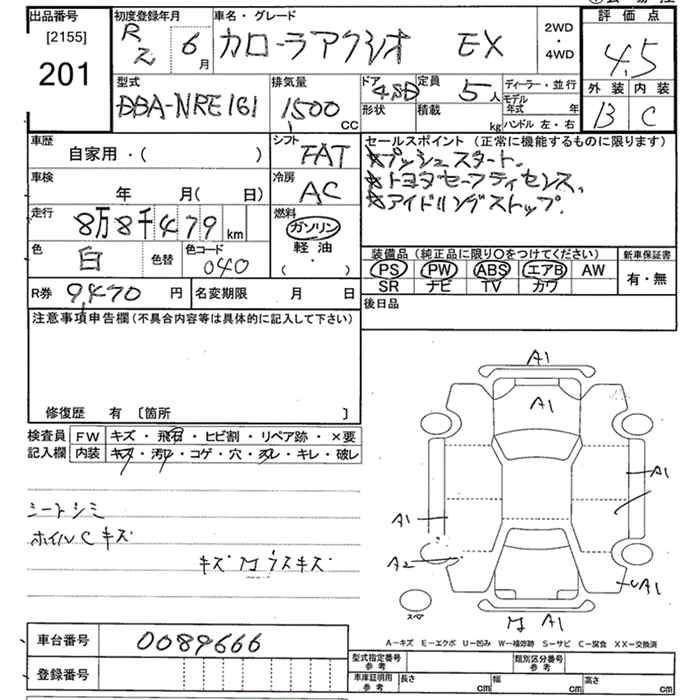 出品番号 初度登録年月 車名・グレード 評価点
[2155] R2 6月 カローラアクシオ EX 2WD・4WD 4.5
201
型式 排気量 ドア 4SD 定員 5人 ディーラー・並行 外装 内装
DBA-NRE161 1500 CC 形状 積載 kg モデル年式 年 B C
ハンドル 左・右
車歴 シフト セールスポイント (正常に機能するものに限ります)
自家用・( ) FAT ★プッシュスタート、
車検 冷房 ★トヨタセーフティセンス、
年 月( 日) AC ★アイドリングストップ.
走行 燃料
8万8千479km ガソリン
色 色替 色コード 軽油 装備品 (純正品に限り○をつけてください) 新車保証書
白 040 ・( ) PS PW ABS エアB AW 有・無
SR ナビ TV カワ
R券 9,470円 名変期限 月 日 後日品
注意事項申告欄 (不具合内容等は具体的に記入して下さい)
修復歴 有 [箇所 ]
検査員 FW キズ・飛石・ヒビ割・リペア跡・×要
記入欄 内装 キズ・汚れ・コゲ・穴・スレ・キレ・破レ
シートシミ
ホイルCキズ
キズ M ウスキズ
A1
A1
A1
A1
A2
A1
スペア
M A1
A-キズ E-エクボ U-凹み W-補修跡 S-サビ C-腐食 XX-交換済
車台番号 0089666
登録番号
型式指定番号 参考 類別区分番号 参考
車庫証明用 参考 長さ cm 幅 cm 高さ cm